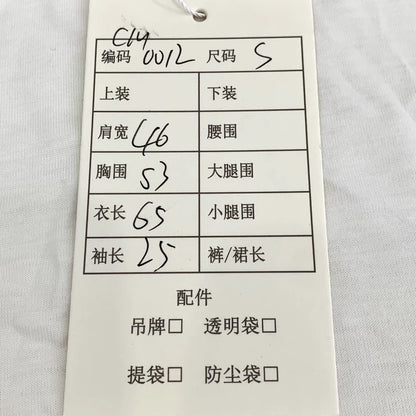 C14
编码 0012 尺码 S
上装 下装
肩宽 46 腰围
胸围 53 大腿围
衣长 65 小腿围
袖长 25 裤/裙长
配件
吊牌□ 透明袋□
提袋□ 防尘袋□